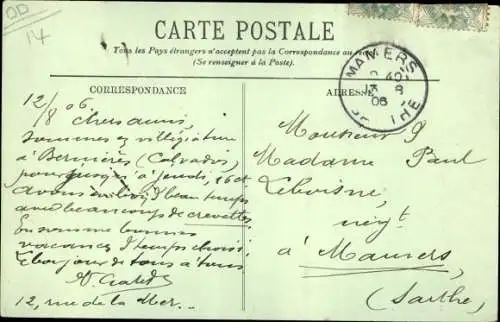 OD
14
CARTE POSTALE
Tous les Pays étrangers n'acceptent pas la Correspondance au
(Se renseigner à la Poste).
MAMERS
13 8
06
SARTHE
CORRESPONDANCE
12/8 06
Chers amis,
sommes en villégiature
à Bernières (Calvados)
jusqu'à jeudi, 16 ct
Avons beau temps
avec beaucoup de crevettes
En somme bonnes
vacances & temps choisi
Le bonjour de tous à tous
12, rue de la Mer.
ADRESSE
Monsieur &
Madame Paul
négt
à Mamers
(Sarthe)